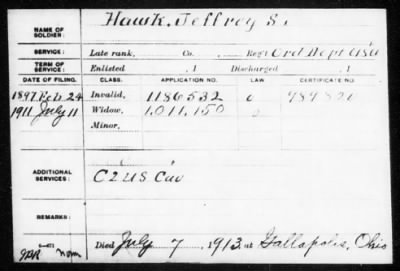 NAME OF SOLDIER: Hawk, Jeffrey S.
SERVICE: Late rank, Co. Reg't Ord Dept USA
TERM OF SERVICE: Enlisted , 1 Discharged , 1
DATE OF FILING. CLASS. APPLICATION NO. LAW CERTIFICATE NO.
1897 Feb 24 Invalid, 1186532
1911 July 11 Widow, 1,011,150
Minor,
ADDITIONAL SERVICES: C 2 US Cav
REMARKS:
Died July 7, 1913, at Gallapolis, Ohio